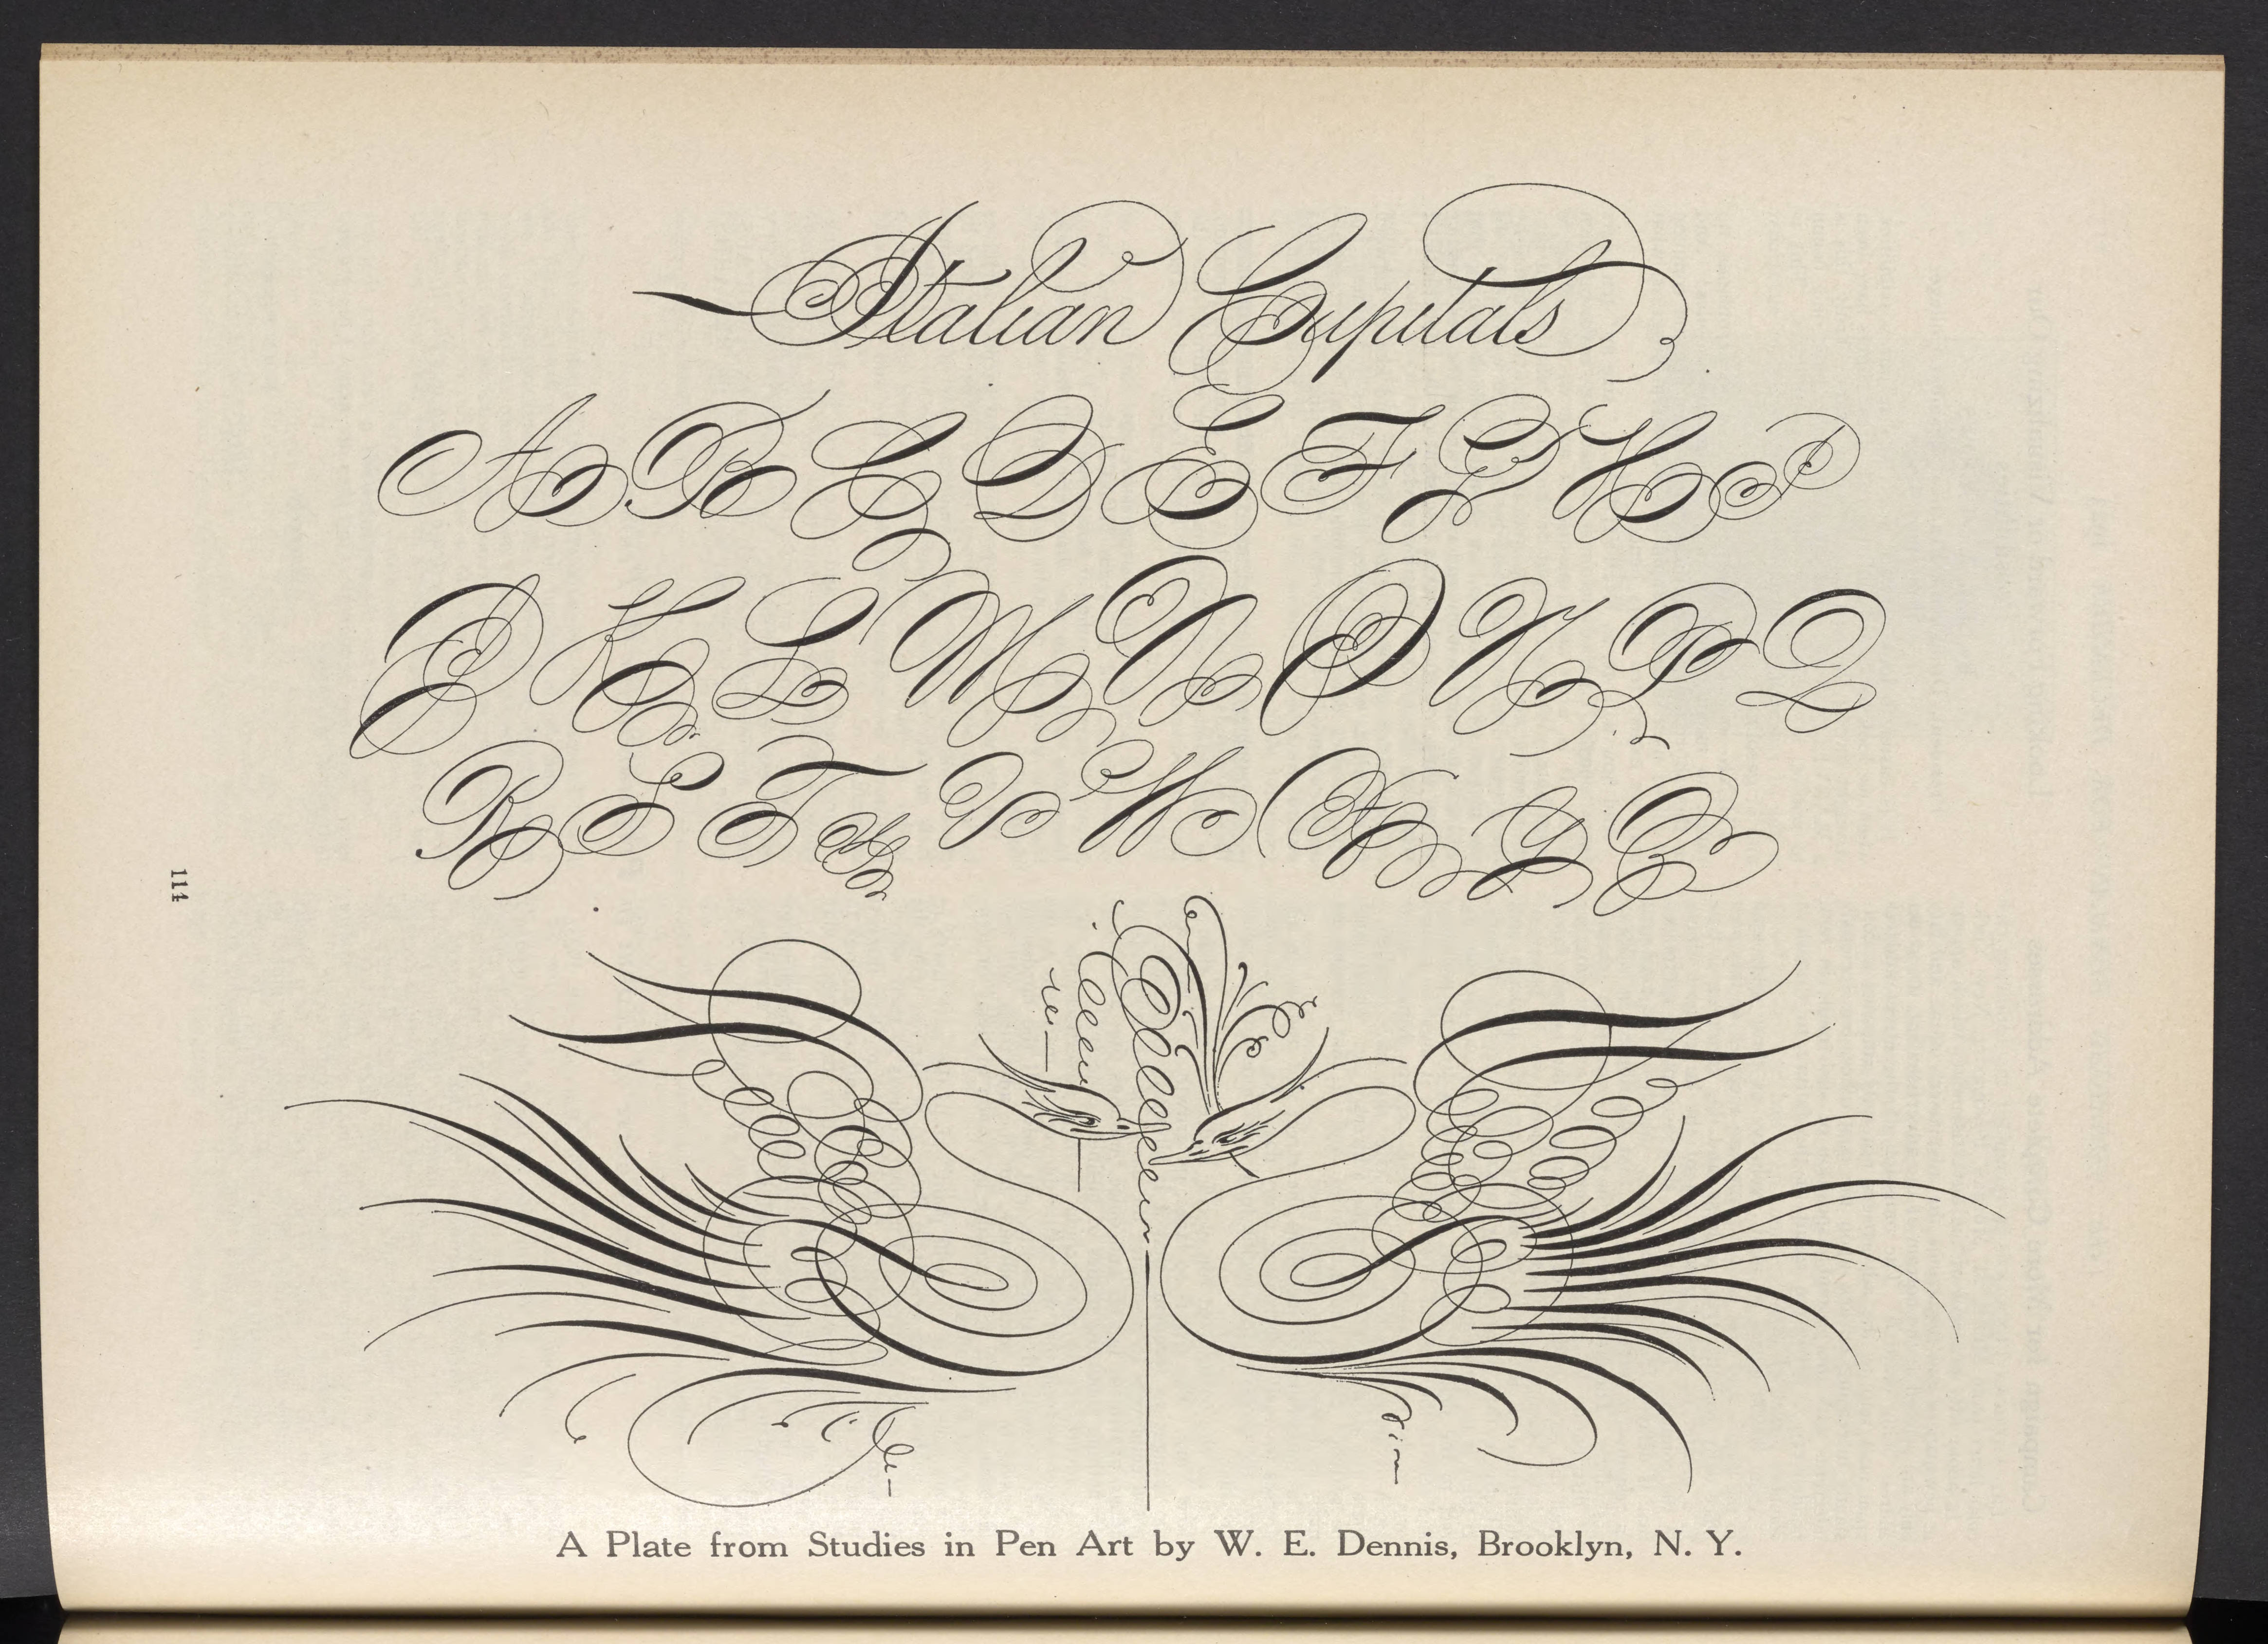 Italian Capitals
A B C D E F G H I
J K L M N O N P Q
R S T V W X Y Z
114
A Plate from Studies in Pen Art by W. E. Dennis, Brooklyn, N. Y.